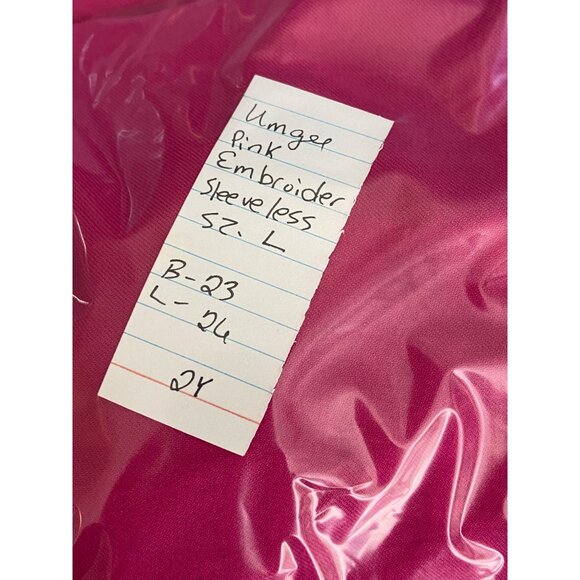 Umgee
Pink
Embroider
Sleeveless
SZ. L
B-23
L-26
24